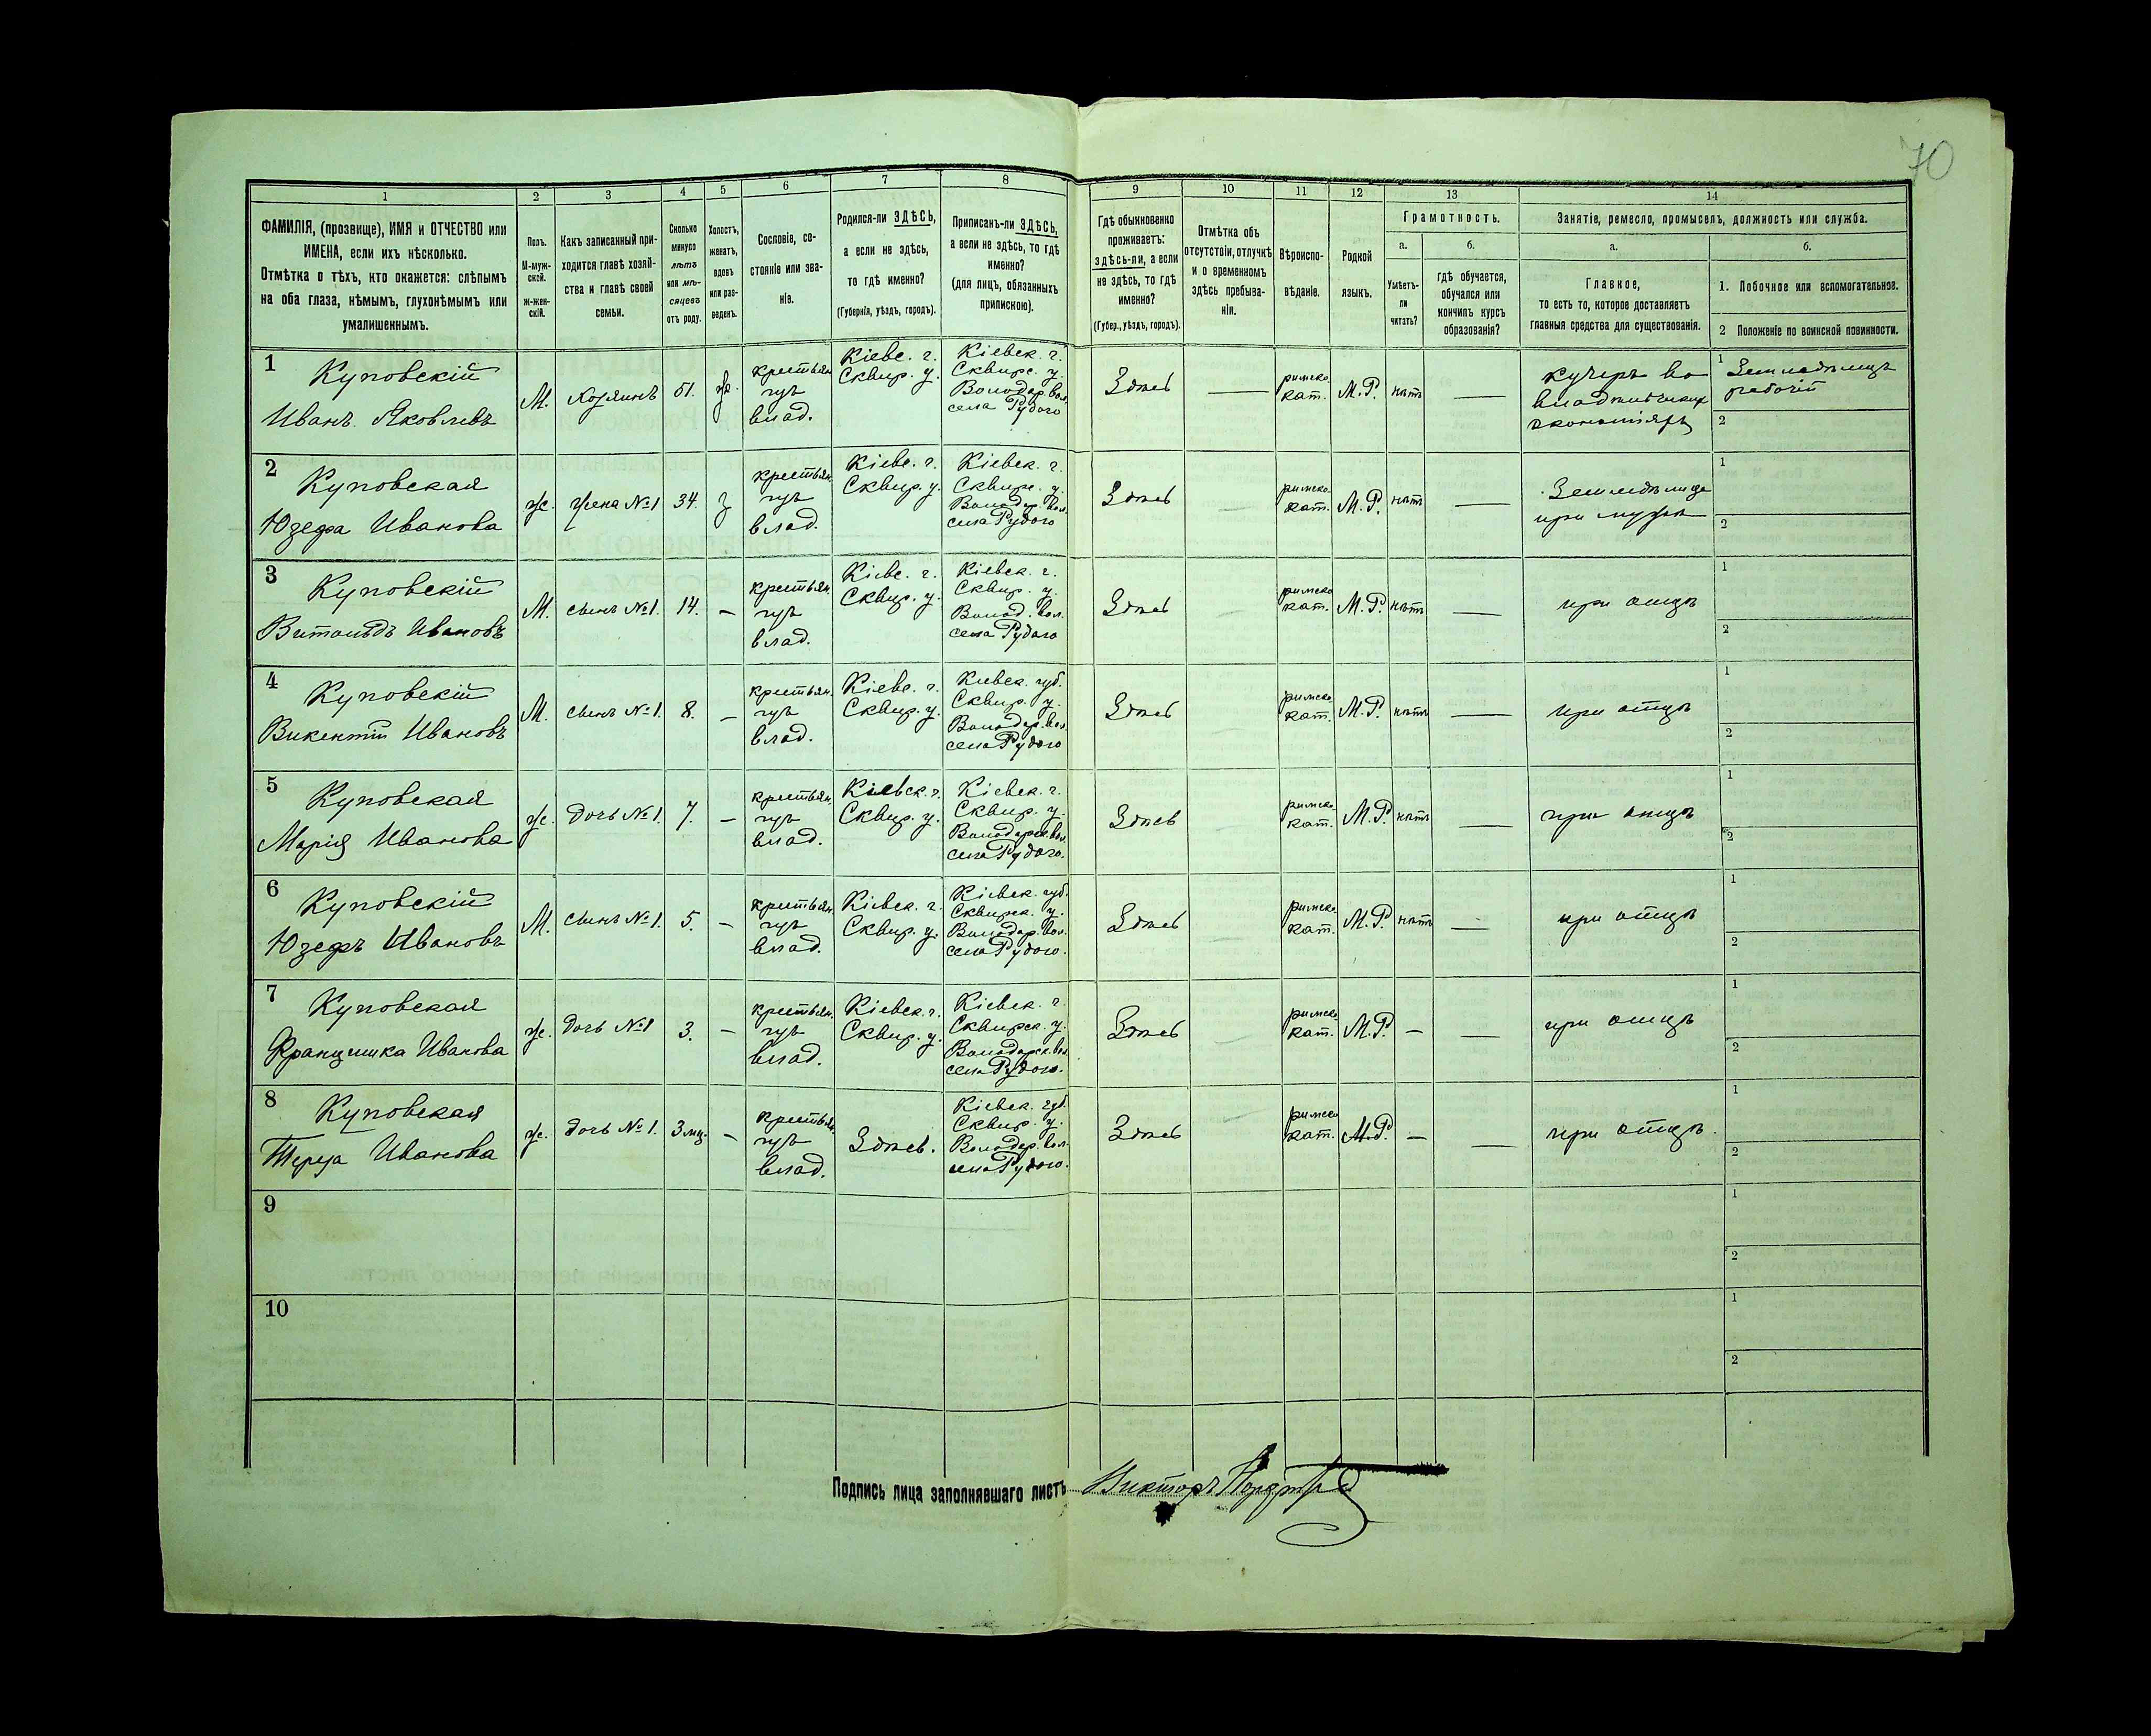 70
1 2 3 4 5 6 7 8 9 10 11 12 13 14
ФАМИЛІЯ, (прозвище), ИМЯ и ОТЧЕСТВО или
ИМЕНА, если ихъ нѣсколько.
Отмѣтка о тѣхъ, кто окажется: слѣпымъ
на оба глаза, нѣмымъ, глухонѣмымъ или
умалишеннымъ.
Полъ.
М-муж-
ской.
Ж-жен-
скій.
Какъ записанный при-
ходится главѣ хозяй-
ства и главѣ своей
семьи.
Сколько
минуло
лѣтъ
или мѣ-
сяцевъ
отъ роду.
Холостъ,
женатъ,
вдовъ
или раз-
веденъ.
Сословіе, со-
стояніе или зва-
ніе.
Родился-ли ЗДѢСЬ,
а если не здѣсь,
то гдѣ именно?
(Губернія, уѣздъ, городъ).
Приписанъ-ли ЗДѢСЬ,
а если не здѣсь, то гдѣ
именно?
(для лицъ, обязанныхъ
припискою).
Гдѣ обыкновенно
проживаетъ:
здѣсь-ли, а если
не здѣсь, то гдѣ
именно?
(Губер., уѣздъ, городъ).
Отмѣтка объ
отсутствіи, отлучкѣ
и о временномъ
здѣсь пребыва-
ніи.
Вѣроиспо-
вѣданіе.
Родной
языкъ.
Грамотность.
а.
Умѣетъ-
ли
читать?
б.
гдѣ обучается,
обучался или
кончилъ курсъ
образованія?
Занятіе, ремесло, промыселъ, должность или служба.
а.
Главное,
то есть то, которое доставляетъ
главныя средства для существованія.
б.
1. Побочное или вспомогательное.
2 Положеніе по воинской повинности.
1
Куповскій
Иванъ Яковлевъ
М.
Хозяинъ
51.
ж.
крестьян.
чзъ
влад.
Кіевс. г.
Сквир. у.
Кіевск. г.
Сквирс. у.
Володар. вол.
села Рудого
Здѣсь
—
римско
кат.
М.Р.
нѣтъ
—
кучеръ во
экономіяхъ
1 Земледѣлецъ
рабочій
2
2
Куповская
Юзефа Иванова
ж.
Жена №1
34.
з
крестьян.
чзъ
влад.
Кіевс. г.
Сквир. у.
Кіевск. г.
Сквирс. у.
Володар. вол.
села Рудого
Здѣсь
—
римско
кат.
М.Р.
нѣтъ
—
при мужѣ
1
2
3
Куповскій
Витольдъ Ивановъ
М.
сынъ №1.
14.
—
крестьян.
чзъ
влад.
Кіевс. г.
Сквир. у.
Кіевск. г.
Сквир. у.
Волод. вол.
села Рудого
Здѣсь
—
римско
кат.
М.Р.
нѣтъ
—
при отцѣ
1
2
4
Куповскій
Викентій Ивановъ
М.
сынъ №1.
8.
—
крестьян.
чзъ
влад.
Кіевс. г.
Сквир. у.
Кіевск. губ.
Сквир. у.
Володар. вол.
села Рудого
Здѣсь
—
римско
кат.
М.Р.
нѣтъ
—
при отцѣ
1
2
5
Куповская
Марія Иванова
ж.
дочь №1.
7.
—
крестьян.
чзъ
влад.
Кіевск. г.
Сквир. у.
Кіевск. г.
Сквир. у.
Володарск. вол.
села Рудого.
Здѣсь
—
римско
кат.
М.Р.
нѣтъ
—
при отцѣ
1
2
6
Куповскій
Юзефъ Ивановъ
М.
сынъ №1.
5.
—
крестьян.
чзъ
влад.
Кіевск. г.
Сквир. у.
Кіевск. губ.
Сквирск. у.
Володар. вол.
села Рудого.
Здѣсь
—
римско
кат.
М.Р.
нѣтъ
—
при отцѣ
1
2
7
Куповская
Францишка Иванова
ж.
дочь №1
3.
—
крестьян.
чзъ
влад.
Кіевск. г.
Сквир. у.
Кіевск. г.
Сквирск. у.
Володарск. вол.
села Рудого.
Здѣсь
—
римско
кат.
М.Р.
—
—
при отцѣ
1
2
8
Куповская
Тереза Иванова
ж.
дочь №1.
3 мц.
—
крестьян.
чзъ
влад.
Здѣсь.
Кіевск. губ.
Сквир. у.
Володар. вол.
села Рудого.
Здѣсь
—
римско
кат.
М.Р.
—
—
при отцѣ.
1
2
9
1
2
10
1
2
Подпись лица заполнявшаго листъ Викторъ